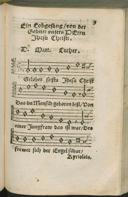 Ein Lobgesang / von der
Geburt unsers HErrn
Jhesu Christi.
D. Mart. Luther.
Gelobet seistu Jhesu Christ
Das du Mensch geboren bist / Von
einer Jungfraw das ist war / Des
frewet sich der Engel schar /
Kyrioleis.